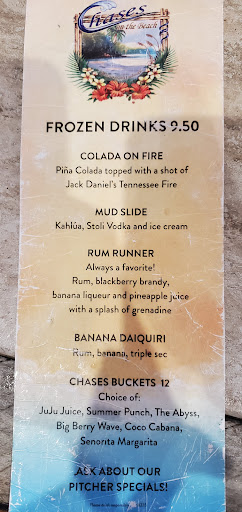 Chases
on the Beach
FROZEN DRINKS 9.50
COLADA ON FIRE
Piña Colada topped with a shot of
Jack Daniel's Tennessee Fire
MUD SLIDE
Kahlúa, Stoli Vodka and ice cream
RUM RUNNER
Always a favorite!
Rum, blackberry brandy,
banana liqueur and pineapple juice
with a splash of grenadine
BANANA DAIQUIRI
Rum, banana, triple sec
CHASES BUCKETS 12
Choice of:
JuJu Juice, Summer Punch, The Abyss,
Big Berry Wave, Coco Cabana,
Senorita Margarita
ASK ABOUT OUR
PITCHER SPECIALS!